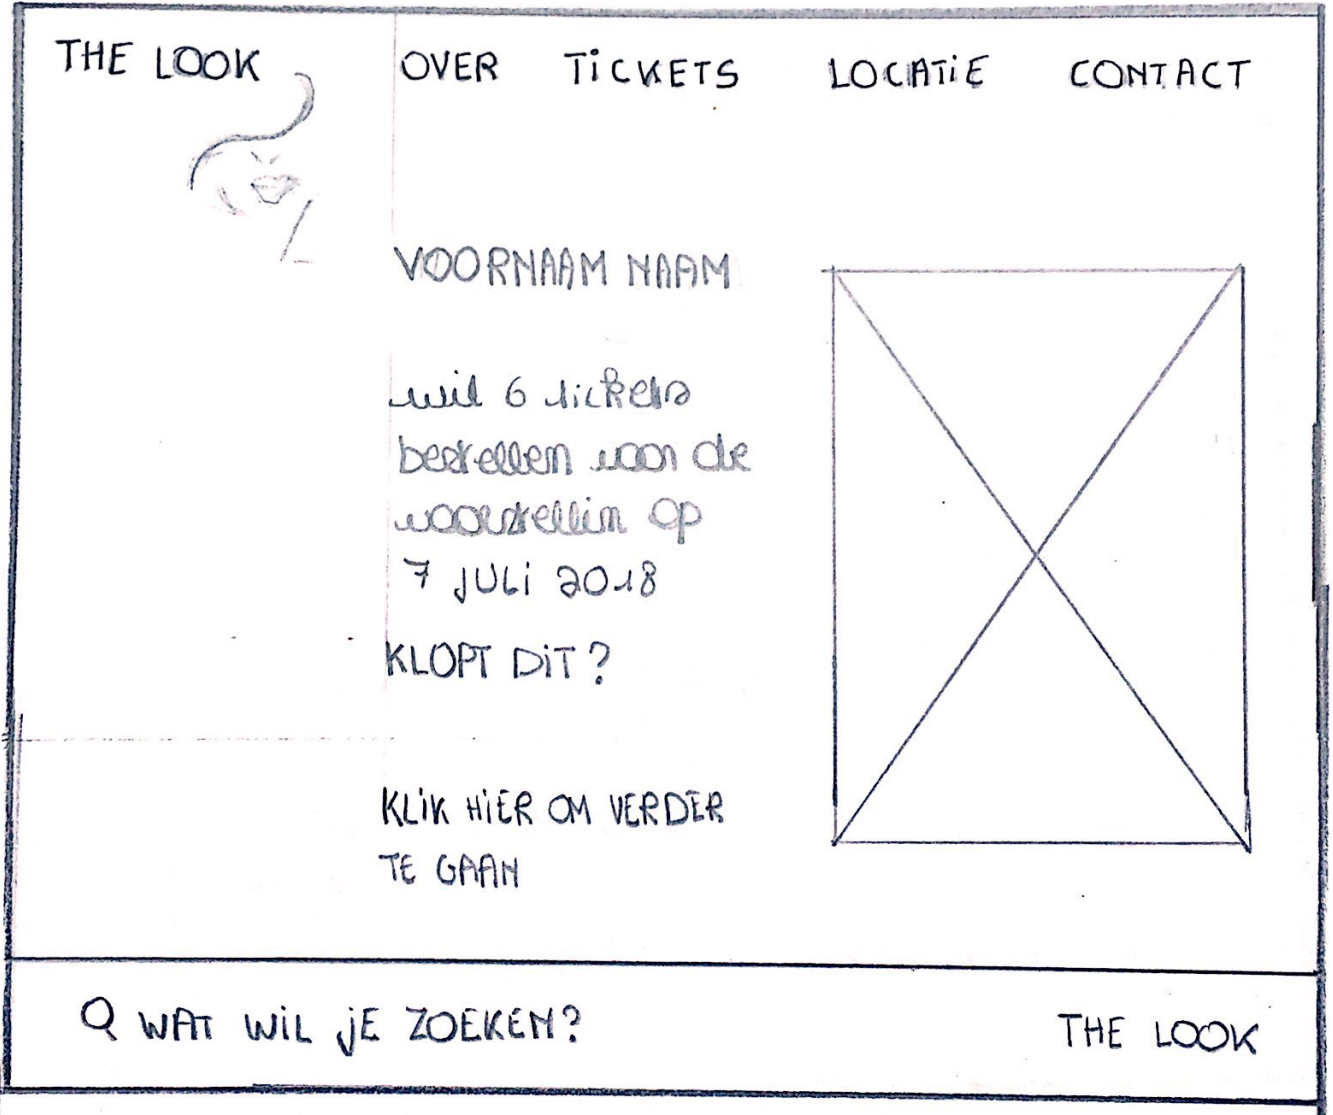 THE LOOK OVER TiCKETS LOCATiE CONTACT
VOORNAAM NAAM
wil 6 tickets
bestellen voor de
voorstellin op
7 JULi 2018
KLOPT DiT?
KLiK HiER OM VERDER
TE GAAN
WAT WiL jE ZOEKEN? THE LOOK